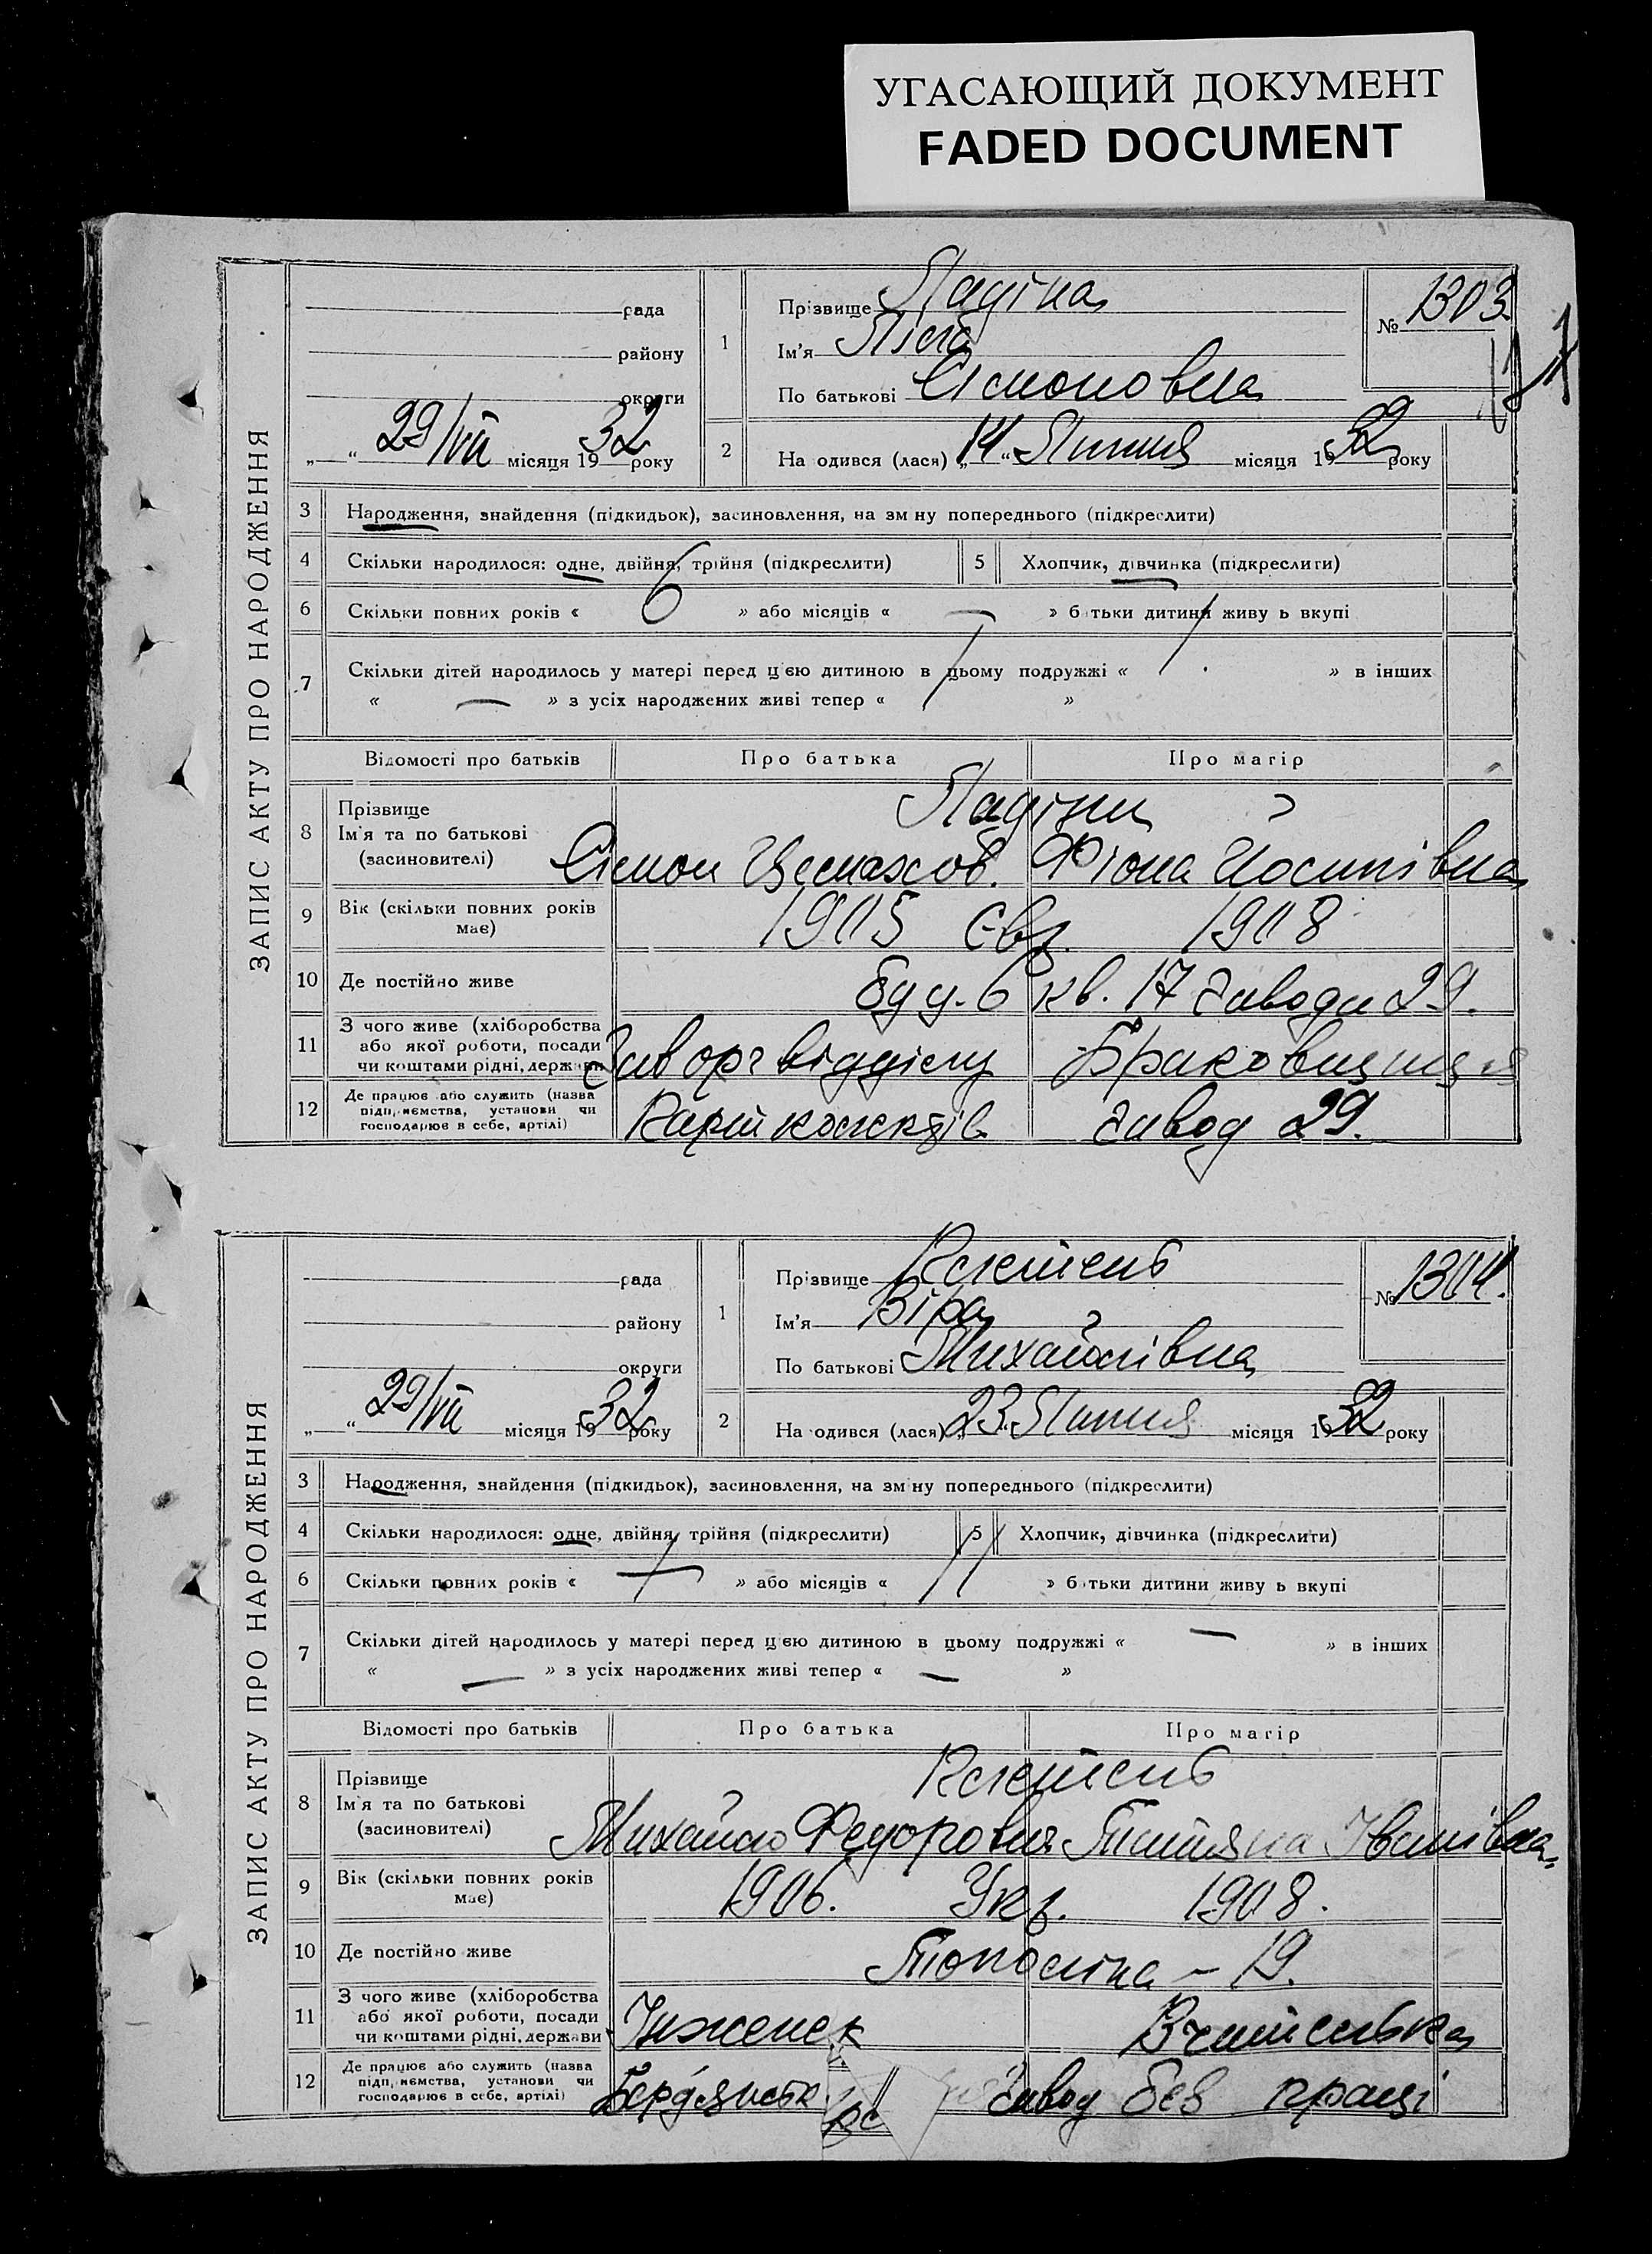 УГАСАЮЩИЙ ДОКУМЕНТ
FADED DOCUMENT
ЗАПИС АКТУ ПРО НАРОДЖЕННЯ
рада
району
округи
„ “ 29/VII місяця 1932 року
1
Прізвище Ладіна
Ім'я
По батькові Сімоновна
№ 1303.
2
На одився (лася) „14“ Липня місяця 1932 року
3 Народження, знайдення (підкидьок), засиновлення, на зм ну попереднього (підкреслити)
4 Скільки народилося: одне, двійня, трійня (підкреслити) 5 Хлопчик, дівчинка (підкреслити)
6 Скільки повних років « 6 » або місяців « — » б тьки дитини живу ь вкупі
7 Скільки дітей народилось у матері перед ц єю дитиною в цьому подружжі « » в інших
« — » з усіх народжених живі тепер « »
Відомості про батьків Про батька Про матір
8 Прізвище
Ім'я та по батькові
(засиновителі)
Ладіни
Сімон Йосипівна
9 Вік (скільки повних років
має)
1905 Євр. 1908
10 Де постійно живе
буд. 6 кв. 17 заводи 29.
11 З чого живе (хліборобства
або якої роботи, посади
чи коштами рідні, держави
Зав орг відділу Браковщиця
12 Де працює або служить (назва
підп, иємства, установи чи
господарює в себе, артілі)
завод 29.
ЗАПИС АКТУ ПРО НАРОДЖЕННЯ
рада
району
округи
„ “ 29/VII місяця 1932 року
1
Прізвище
Ім'я Віра
По батькові Михайлівна
№ 1304.
2
На одився (лася) „23“ Липня місяця 1932 року
3 Народження, знайдення (підкидьок), засиновлення, на зм ну попереднього (підкреслити)
4 Скільки народилося: одне, двійня, трійня (підкреслити) 5 Хлопчик, дівчинка (підкреслити)
6 Скільки повних років « » або місяців « » б тьки дитини живу ь вкупі
7 Скільки дітей народилось у матері перед ц єю дитиною в цьому подружжі « — » в інших
« — » з усіх народжених живі тепер « — »
Відомості про батьків Про батька Про матір
8 Прізвище
Ім'я та по батькові
(засиновителі)
Михайло Федорович Татяна Іванівна
9 Вік (скільки повних років
має)
1906. Укр. 1908.
10 Де постійно живе
Тополіна – 19.
11 З чого живе (хліборобства
або якої роботи, посади
чи коштами рідні, держави
Инженер Вчителька
12 Де працює або служить (назва
підп, иємства, установи чи
господарює в себе, артілі)
завод без праці